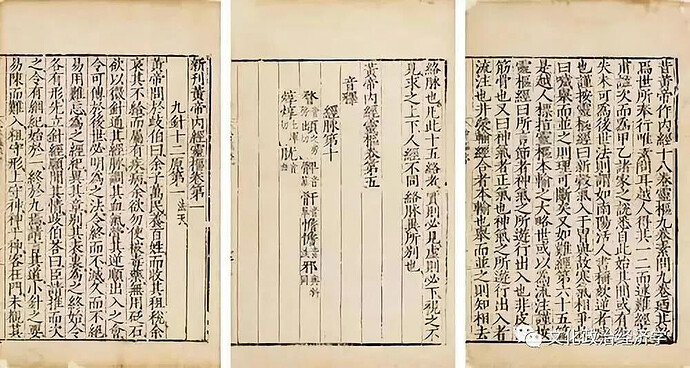 昔黃帝作內經十八卷靈樞九卷素問九卷迺其數
焉世所奉行唯素問耳越人得其一二而述難經
皇甫謐次而為甲乙諸家之說悉自此始其間或有得
失未可為後世法則謂如南陽活人書稱欬逆者噦
也謹按靈樞經曰新穀氣入于胃與故寒氣相爭故
曰噦舉而並之則理可斷矣又如難經第六十五篇
是越人標指靈樞本輸之大略世或以為流注謹按
靈樞經曰所言節者神氣之所遊行出入也非皮肉
筋骨也又曰神氣者正氣也神氣之所遊行出入者
流注也井滎輸經合者本輸也舉而並之則知相去
絡脈也凡此十五絡者實則必見虛則必下視之不
見求之上下人經不同絡脈異所別也
黃帝內經靈樞卷第五
音釋
經脈第十
新刊黃帝內經靈樞卷第一
九針十二原第一 法天
黃帝問於歧伯曰余子萬民養百姓而收其租稅余
哀其不給而屬有疾病余欲勿使被毒藥無用砭石
欲以微針通其經脈調其血氣營其逆順出入之會
令可傳於後世必明為之法令終而不滅久而不絕
易用難忘為之經紀異其章別其表裏為之終始令
各有形先立針經願聞其情歧伯荅曰臣請推而次
之令有綱紀始於一終於九焉請言其道小針之要
易陳而難入粗守形上守神神乎神客在門未覩其
文化政治经济学